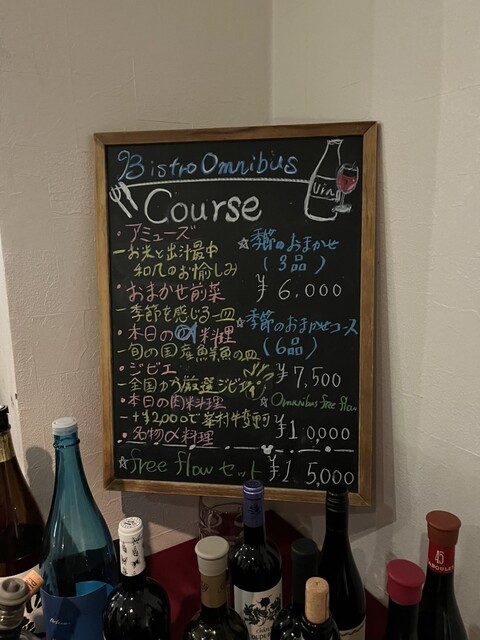 Bistro Omnibus
Course
Vin
・アミューズ
ーお米と出汁最中
和几のお愉しみ
・おまかせ前菜
ー季節を感じる一皿
・本日の料理
ー旬の国産鮮魚の一皿
・ジビエ
ー全国から厳選ジビエ
・本日の肉料理
ー+¥1200で
・名物〆料理
☆季節のおまかせ
(3品)
¥6.000
☆季節のおまかせコース
(6品)
¥7,500
☆Omnibus free flow
¥10,000
☆free flowセット ¥15,000